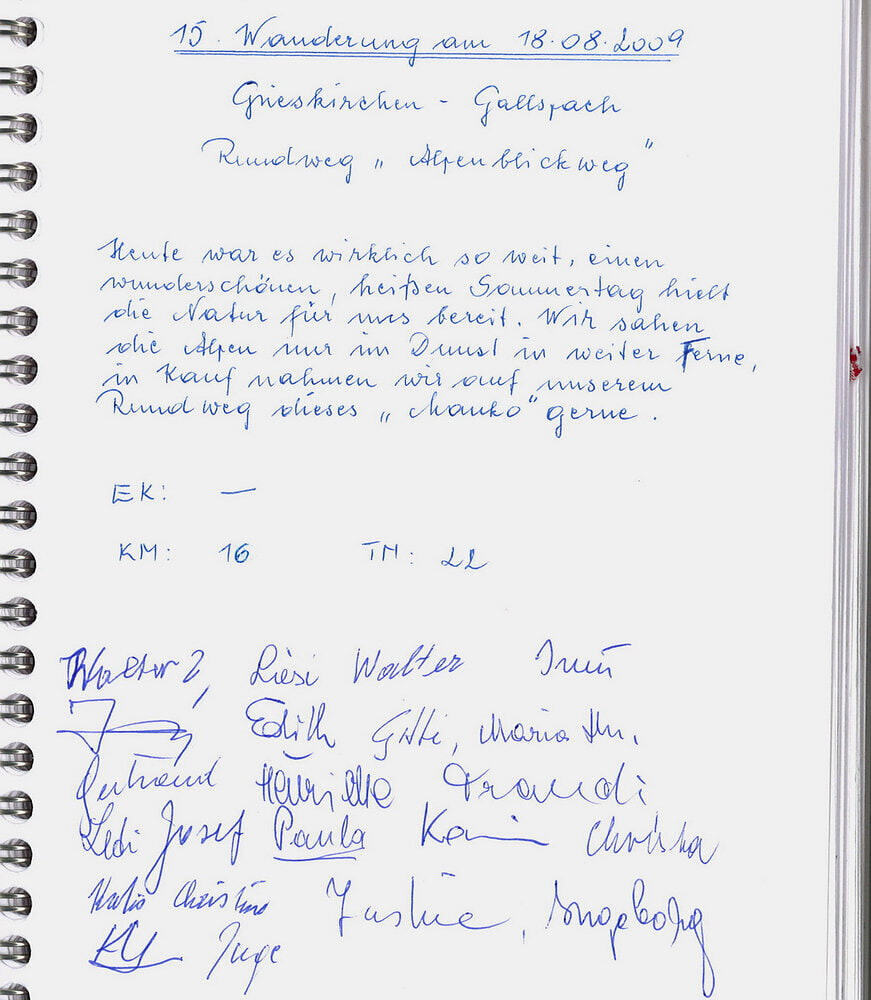 15. Wanderung am 18.08.2009
Grieskirchen - Gallspach
Rundweg „Alpenblickweg"
Heute war es wirklich so weit, einen
wunderschönen, heißen Sommertag hielt
die Natur für uns bereit. Wir sahen
die Alpen nur im Dunst in weiter Ferne,
in Kauf nahmen wir auf unserem
Rundweg dieses „Manko" gerne.
EK: —
KM: 16 TN: 22
Walter Z, Liesi Walter
Edith Gitti, Maria
Gertraud Henriette Traudi
Josef Paula Karin Christa
Christine Justine, Ingeborg
Inge